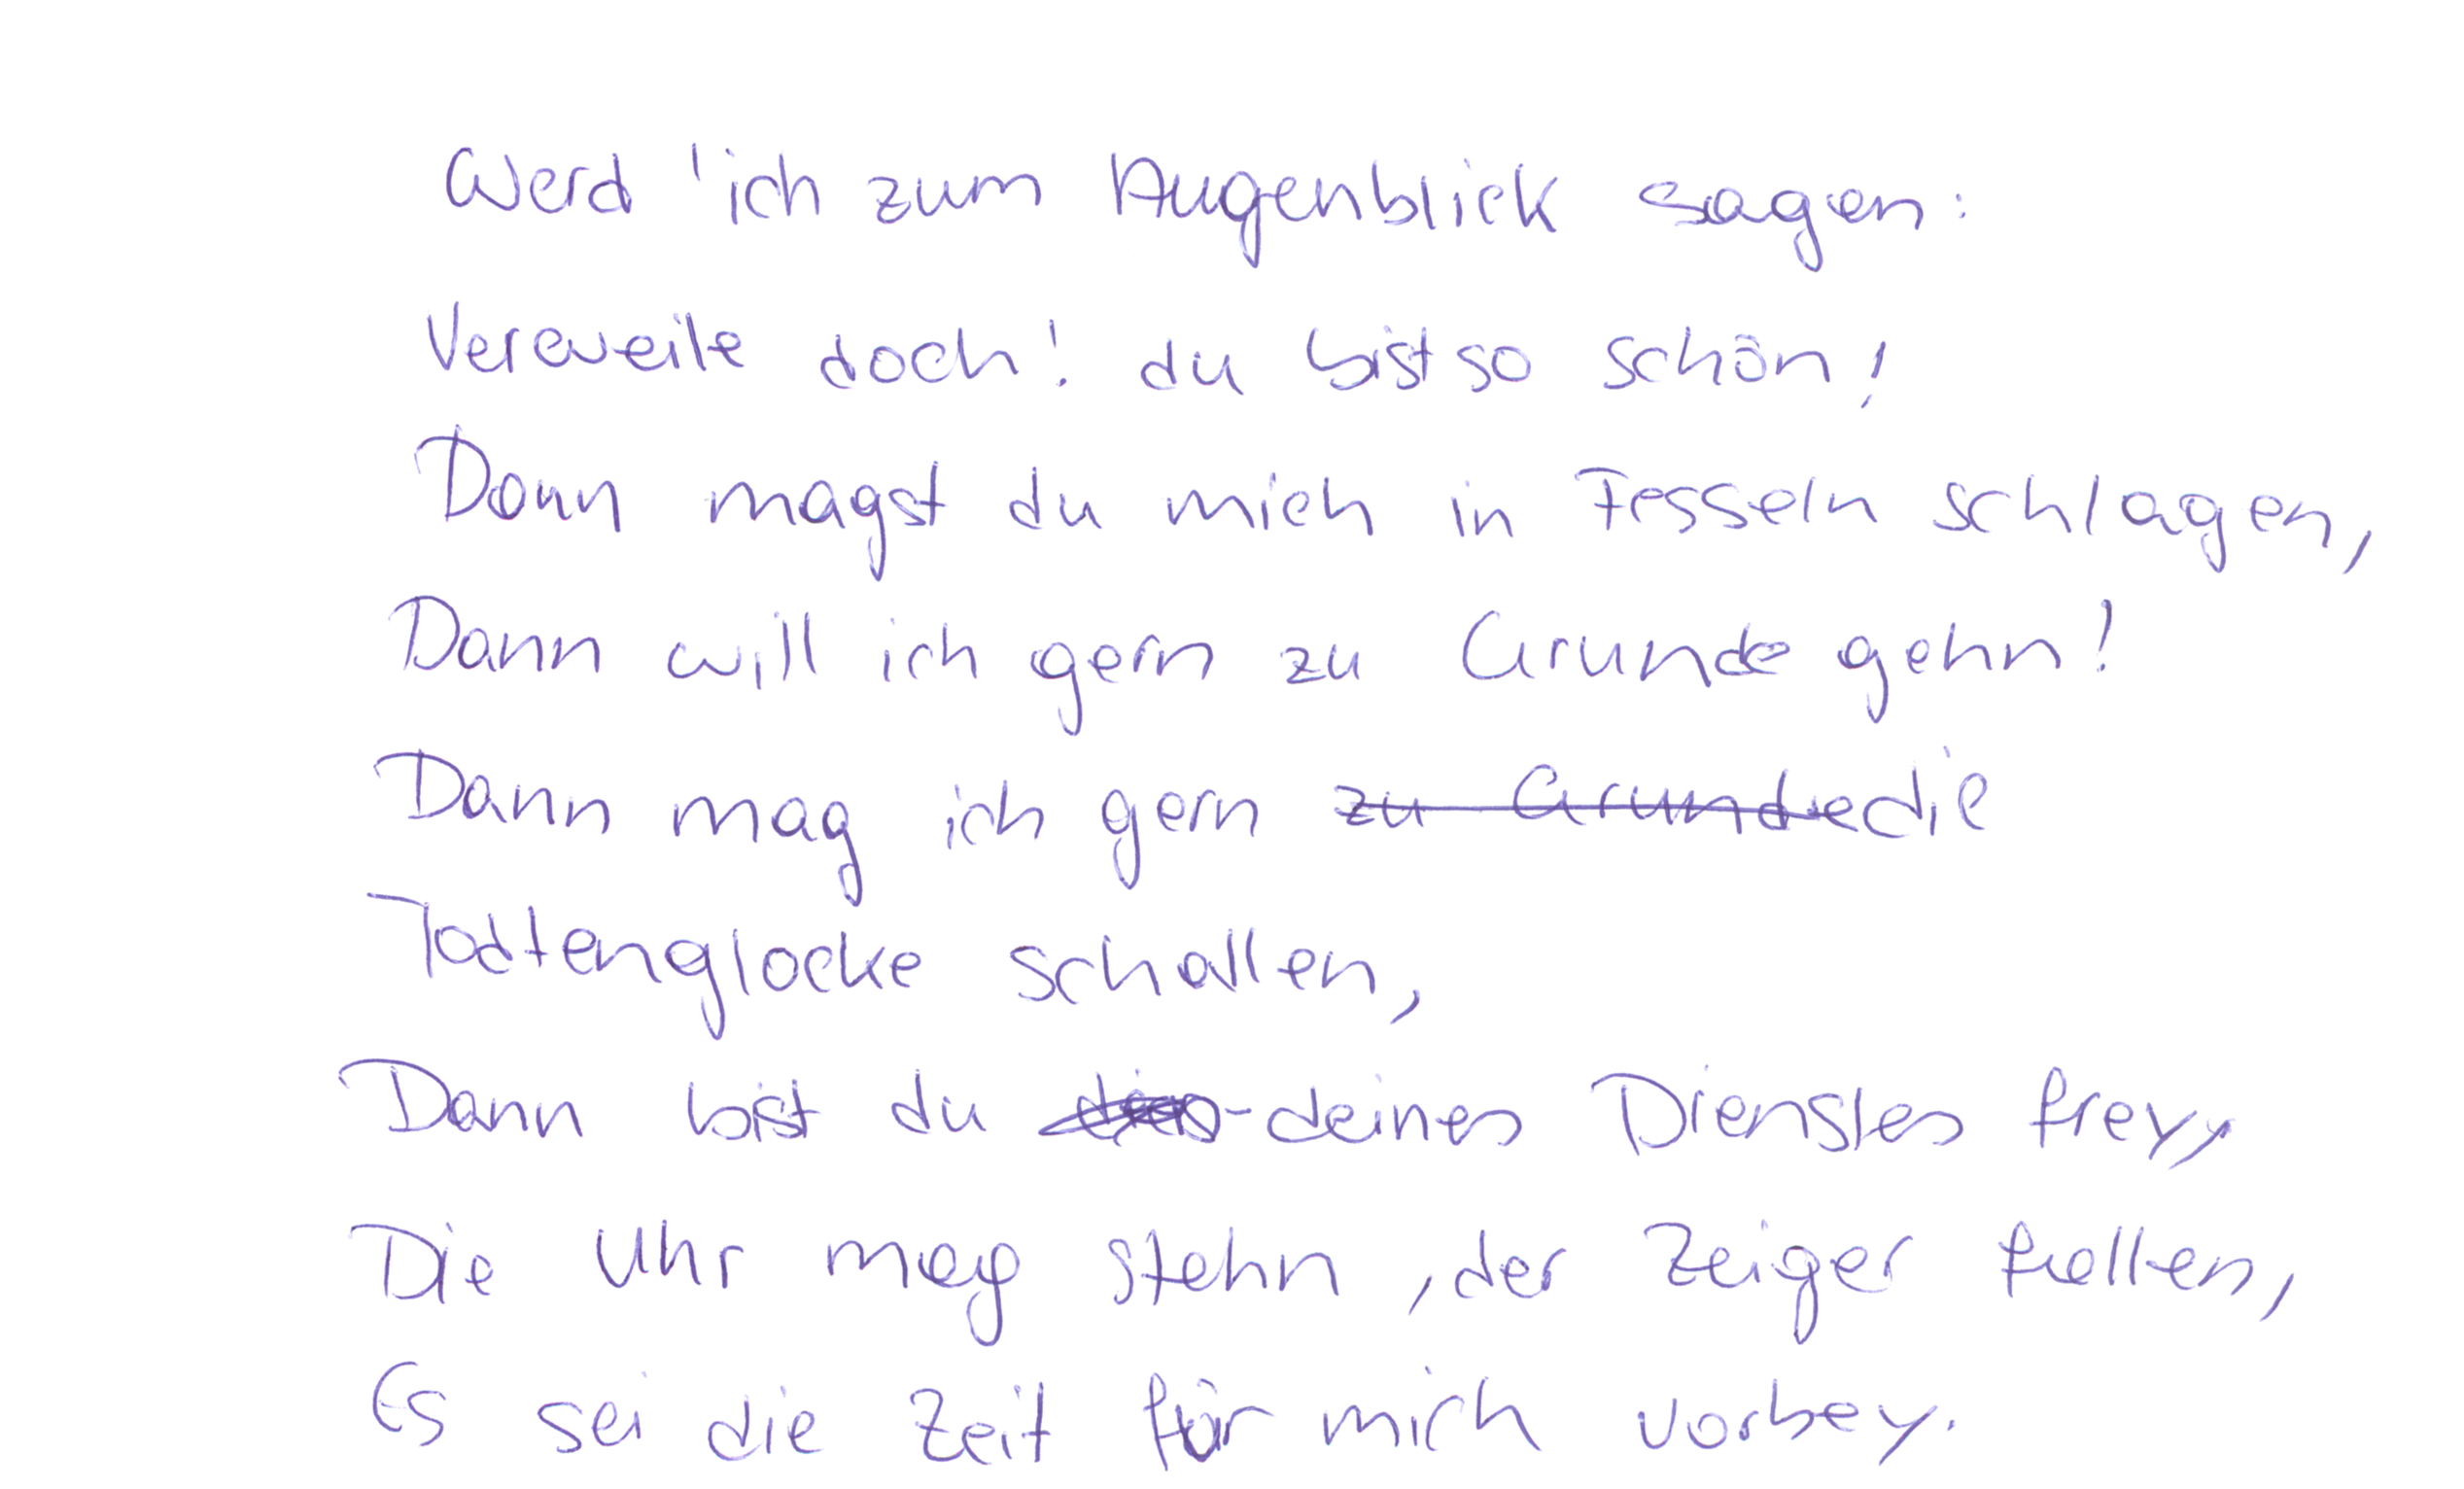 Werd 'ich zum Augenblick sagen:
Verweile doch! du bist so schön!
Dann magst du mich in Fesseln schlagen,
Dann will ich gern zu Grunde gehn!
Dann mag ich gern zu Grunde die
Todtenglocke schallen,
Dann bist du deines Dienstes frey,
Die Uhr mag stehn, der Zeiger fallen,
Es sei die Zeit für mich vorbey.